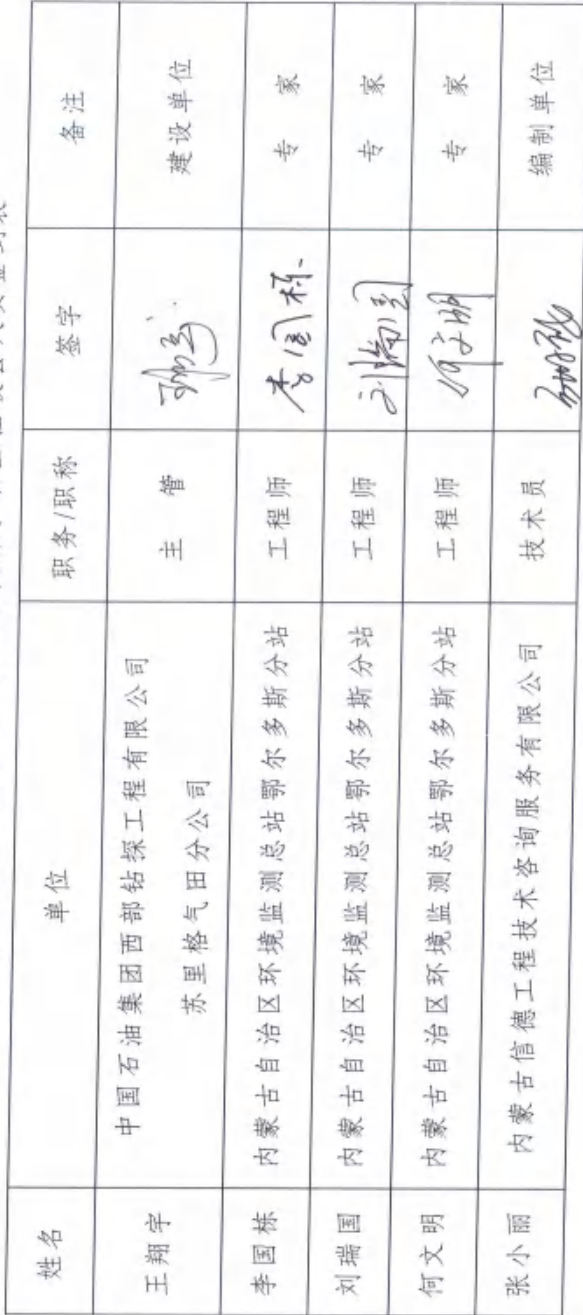 姓名 单位 职务/职称 签字 备注
王翔宇 中国石油集团西部钻探工程有限公司 主 管 建设单位
苏里格气田分公司
李国栋 内蒙古自治区环境监测总站鄂尔多斯分站 工程师 李国栋 专 家
刘瑞国 内蒙古自治区环境监测总站鄂尔多斯分站 工程师 刘瑞国 专 家
何文明 内蒙古自治区环境监测总站鄂尔多斯分站 工程师 何文明 专 家
张小丽 内蒙古信德工程技术咨询服务有限公司 技术员 编制单位